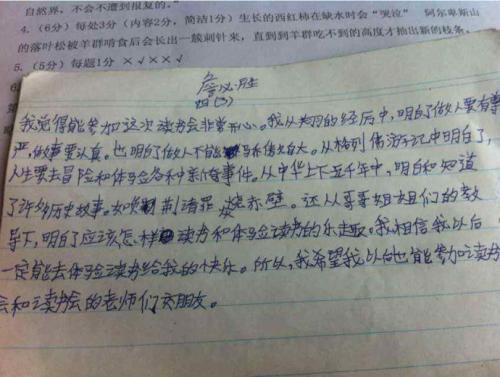 自然界，不会不遭到报复的。”
4.（6分）每处3分（内容2分，简洁1分）生长的西红柿在缺水时会“哭泣” 阿尔卑斯山
的落叶松被羊群啃食后会长出一簇刺针来，直到到羊群吃不到的高度才抽出新的枝条。
5.（5分）每题1分 ×√××√
詹必胜
四(3)
我觉得能参加这次读书会非常开心。我从的经历中，明白了做人要有尊
严，做事要认真。也明白了做人不能骄傲自大。从格列佛游记中明白了，
人生要去冒险和体验各种新奇事件。从中华上下五千年中，明白和知道
了许多历史故事。如荆请罪 火烧赤壁。还从哥哥姐姐们的教
导下，明白了应该怎样读书和体验读书的乐趣。我相信我以后
一定能去体验读书给我的快乐。所以，我希望我以后也能参加读书
会和读书会的老师们交朋友。